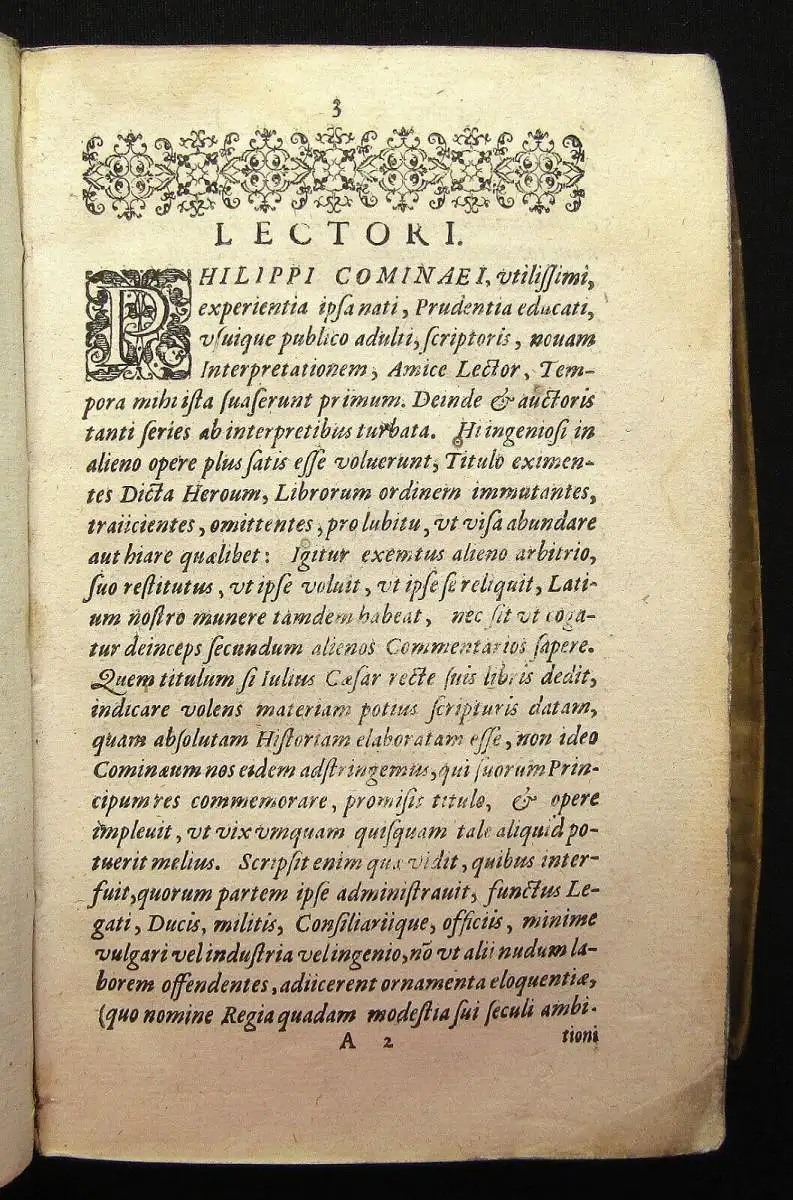 3
LECTORI.
PHILIPPI COMINAEI, vtiliſſimi,
experientia ipſa nati, Prudentia educati,
vſuique publico adulti, ſcriptoris, nouam
Interpretationem, Amice Lector, Tem-
pora mihi iſta ſuaſerunt primum. Deinde & auctoris
tanti ſeries ab interpretibus turbata. Hi ingenioſi in
alieno opere plus ſatis eſſe voluerunt, Titulo eximen-
tes Dicta Heroum, Librorum ordinem immutantes,
traiicientes, omittentes, pro lubitu, vt viſa abundare
aut hiare quælibet: Igitur exemtus alieno arbitrio,
ſuo reſtitutus, vt ipſe voluit, vt ipſe ſe reliquit, Lati-
um noſtro munere tamdem habeat, nec ſit vt coga-
tur deinceps ſecundum alienos Commentarios ſapere.
Quem titulum ſi Iulius Cæſar recte ſuis libris dedit,
indicare volens materiam potius ſcripturis datam,
quam abſolutam Hiſtoriam elaboratam eſſe, non ideo
Cominæum nos eidem adſtringemus, qui ſuorum Prin-
cipum res commemorare, promiſit titulo, & opere
impleuit, vt vix vmquam quiſquam tale aliquid po-
tuerit melius. Scripſit enim quæ vidit, quibus inter-
fuit, quorum partem ipſe adminiſtrauit, functus Le-
gati, Ducis, militis, Conſiliariique, officiis, minime
vulgari vel induſtria vel ingenio, nō vt alii nudum la-
borem offendentes, adiicerent ornamenta eloquentiæ,
(quo nomine Regia quadam modeſtia ſui ſeculi ambi-
A 2 tioni